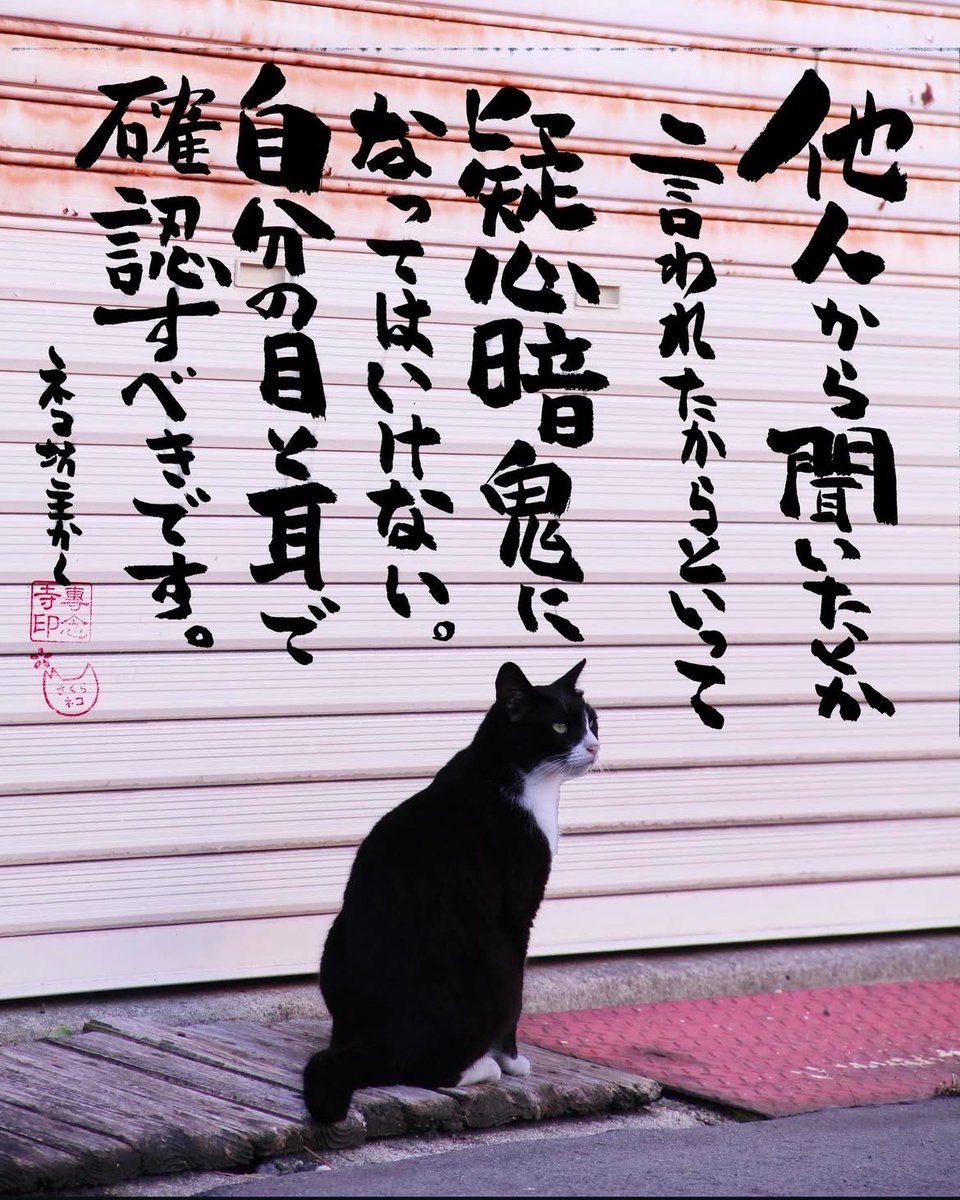 他人から聞いたとか
言われたからといって
疑心暗鬼に
なってはいけない。
自分の目と耳で
確認すべきです。
ネコ坊主かく
專念
寺印
さくら
ネコ